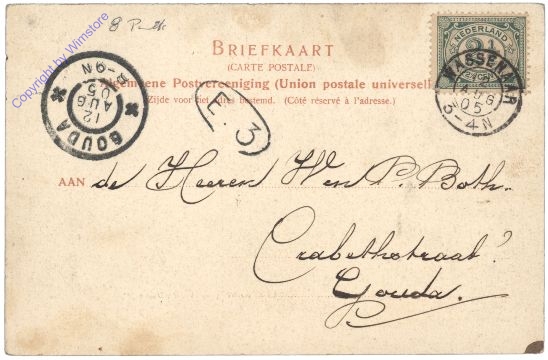 8 P
Copyright by Wimstore
BRIEFKAART
(CARTE POSTALE)
Algemeene Postvereeniging (Union postale universelle)
Zijde voor het adres bestemd. (Côté réservé à l'adresse.)
NEDERLAND
2½
CENT
WASSENAAR
AUG
05
3-4N
8-9N
12
AUG
05
GOUDA
E. 3
AAN de Heeren W en P. Both.
Crabethstraat
Gouda.